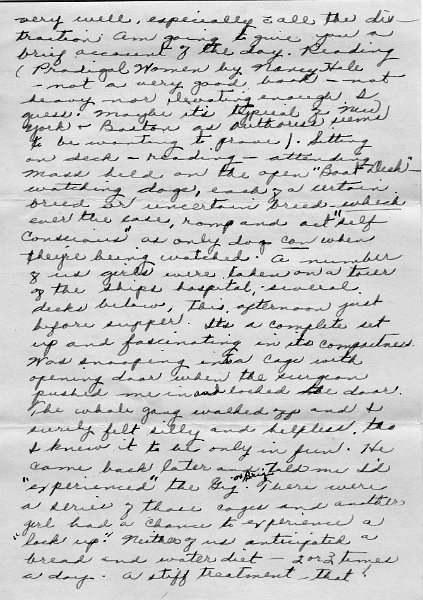 very well, especially c all the dis-
traction. Am going to give you a
brief account of the day. Reading
(Prodigal Women by Nancy Hale
- not a very good book - not
heavy nor elevating enough I
guess. Maybe it's typical of New
York & Boston as authoress seems
to be wanting to prove). Sitting
on deck - reading - attending
Mass held on the open "Boat Deck" -
watching dogs, each of a certain
breed or uncertain breed - which
ever the case, romp and act "self
conscious" as only dog can when
they're being watched. A number
of us girls were taken on a tour
of the ships hospital, several
decks below, this afternoon just
before supper. Its a complete set
up and fascinating in its compactness.
Was snooping into a cage with
opening door when the surgeon
pushed me in and locked the door.
The whole gang walked off and I
surely felt silly and helpless, tho
I knew it to be only in fun. He
came back later and told me I'd
"experienced" the or Brig. There were
a series of those cages and another
girl had a chance to experience a
"lock up". Neither of us anticipated a
bread and water diet - 2 or 3 times
a day. A stiff treatment - that!